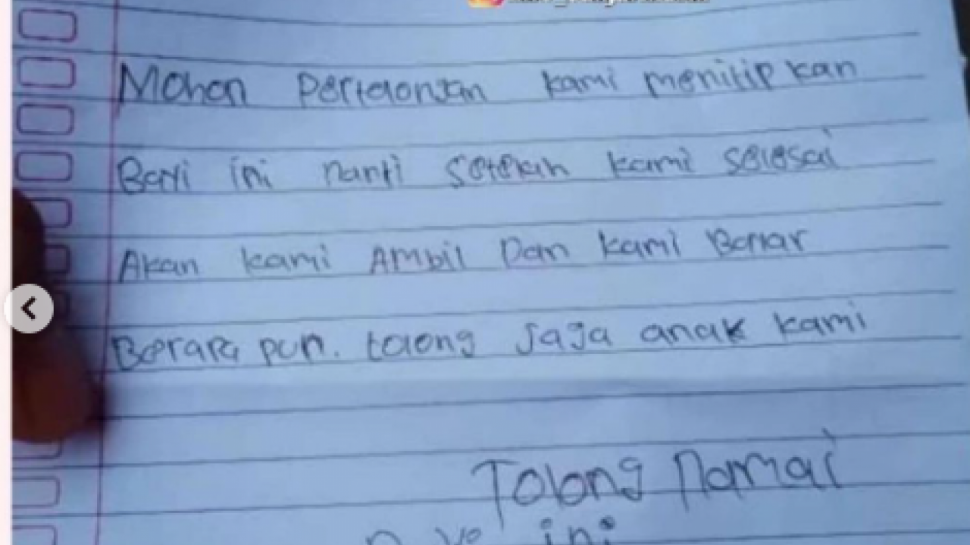 Mohon Pertolongan kami menitipkan
Bayi ini nanti setelah kami selesai
Akan kami Ambil Dan kami Bayar
Berapa pun. tolong jaga anak kami
Tolong Namai
ini